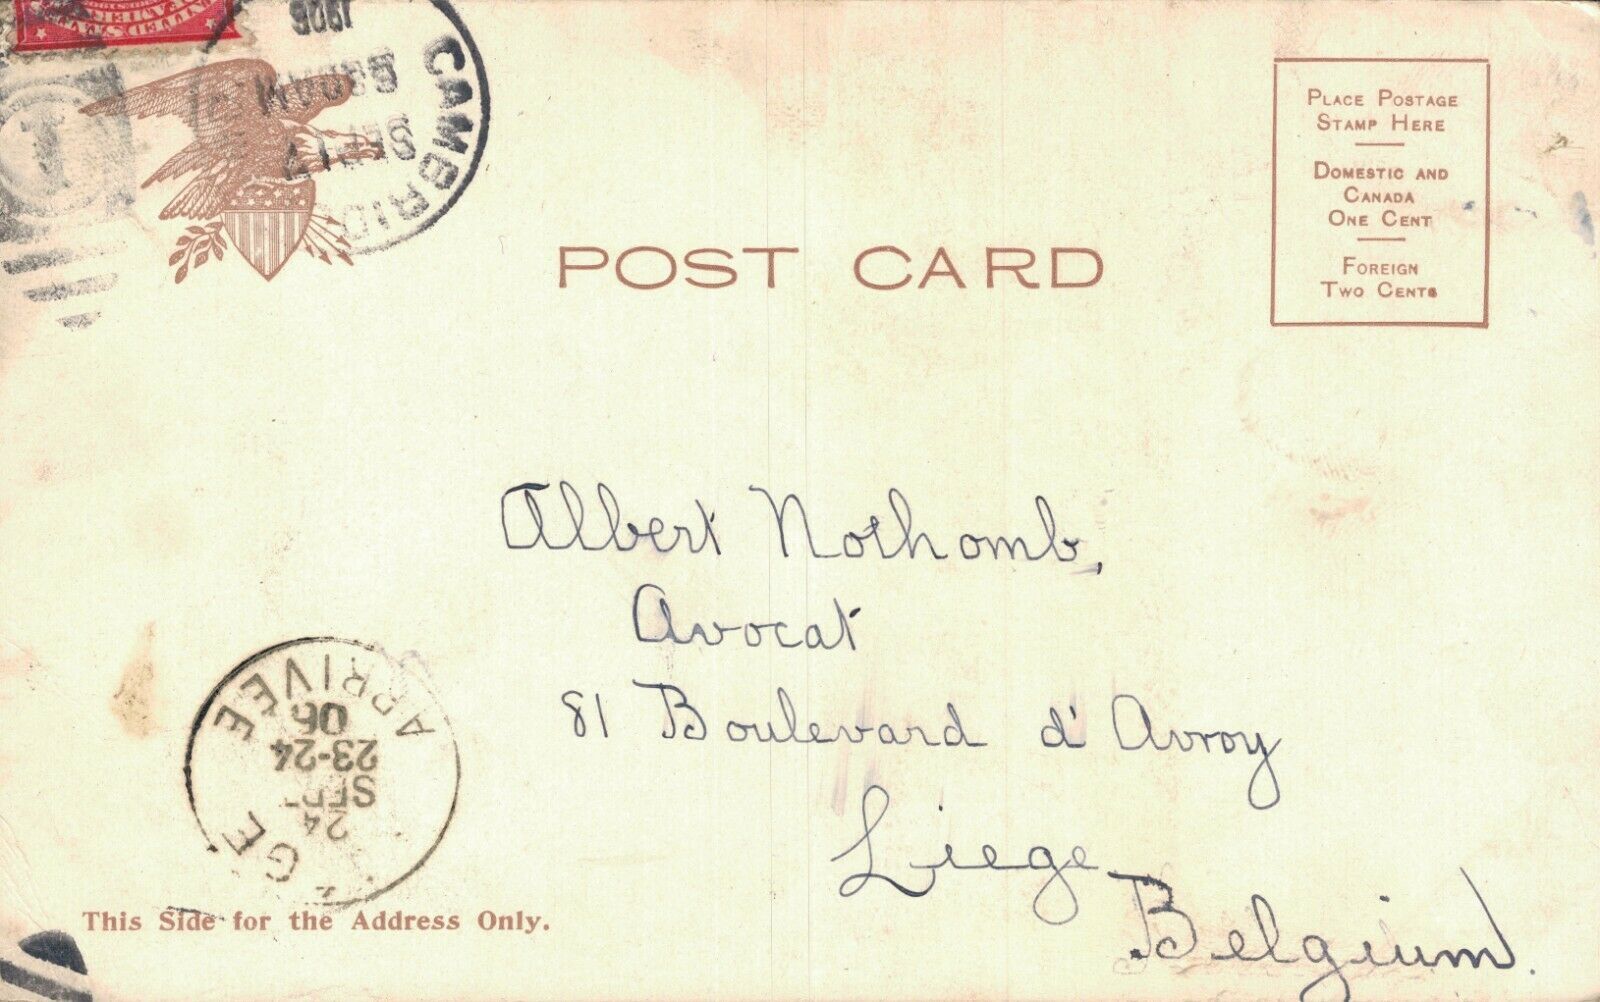 CAMBRIDG
SEP 17
1906
POST CARD
PLACE POSTAGE
STAMP HERE
DOMESTIC AND
CANADA
ONE CENT
FOREIGN
TWO CENTS
Albert Nothomb,
Avocat
81 Boulevard d'Avroy
Liege
Belgium.
GE
24
SEPT
23-24
06
ARRIVEE
This Side for the Address Only.